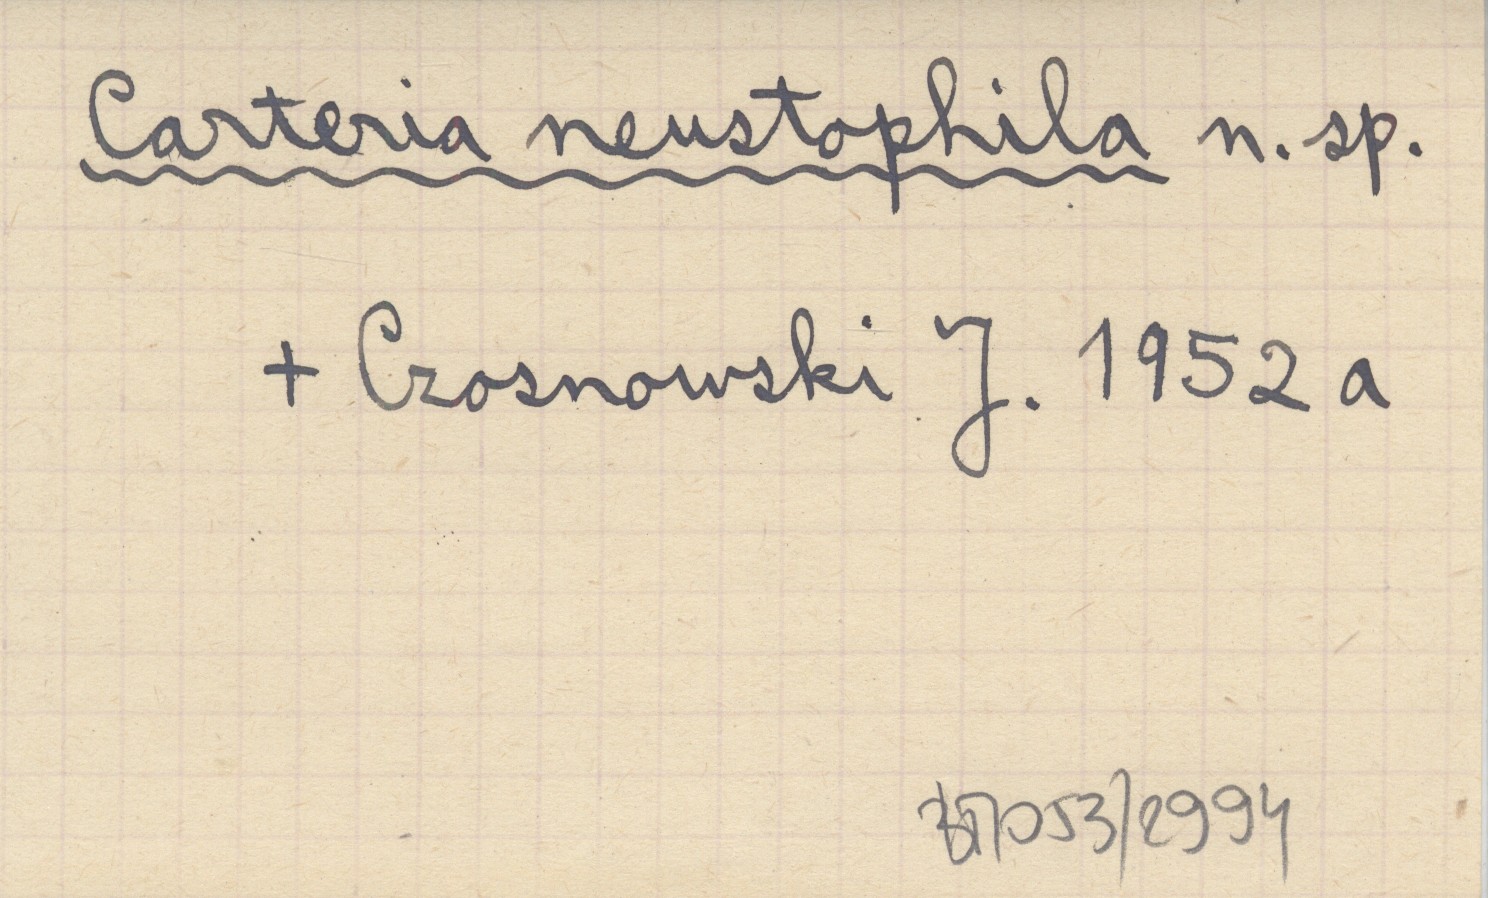 Carteria neustophila n. sp.
+ Czosnowski J. 1952 a
/2994